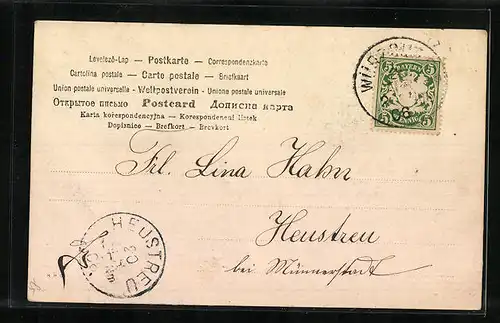 Levelezö-Lap — Postkarte — Correspondenzkarte
Cartolina postale — Carte postale — Briefkaart
Union postale universelle - Weltpostverein - Unione postale universale
Открытое письмо Postcard Дописна карта
Karta korespondencyjna — Korespondenční lístek
Dopisnice — Brefkort — Brevkort
BAYERN
5 5
5 5
Frl. Lina Hahn
Heustreu
bei Münnerstadt
HEUSTREU
03